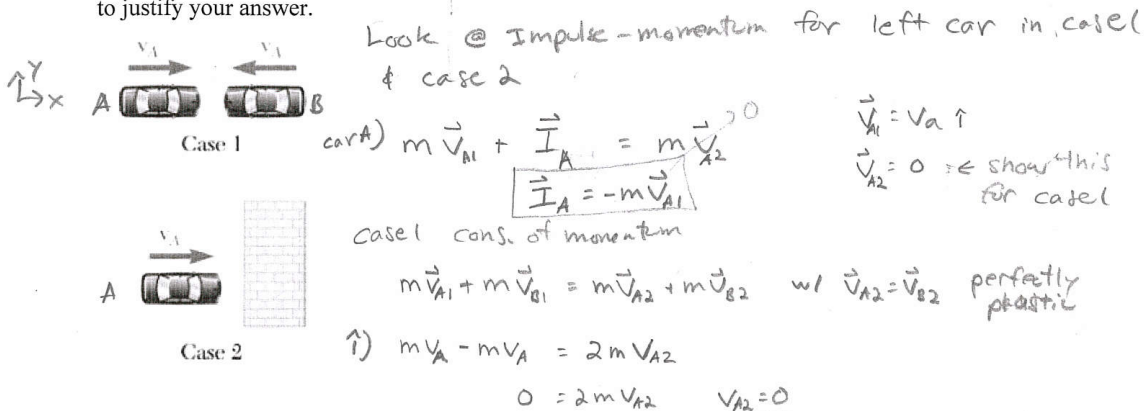 to justify your answer.
Look @ Impulse-momentum for left car in case1
& case 2
V_A V_A
Y
X
A B
Case 1
carA) m V⃗_A1 + I⃗_A = m V⃗_A2 → 0
I⃗_A = -m V⃗_A1
V⃗_A1 = Va î
V⃗_A2 = 0 ← show this
for case1
case1 cons. of momentum
m V⃗_A1 + m V⃗_B1 = m V⃗_A2 + m V⃗_B2 w/ V⃗_A2 = V⃗_B2 perfectly
plastic
V_A
A
Case 2
î) m V_A - m V_A = 2 m V_A2
0 = 2 m V_A2 V_A2 = 0